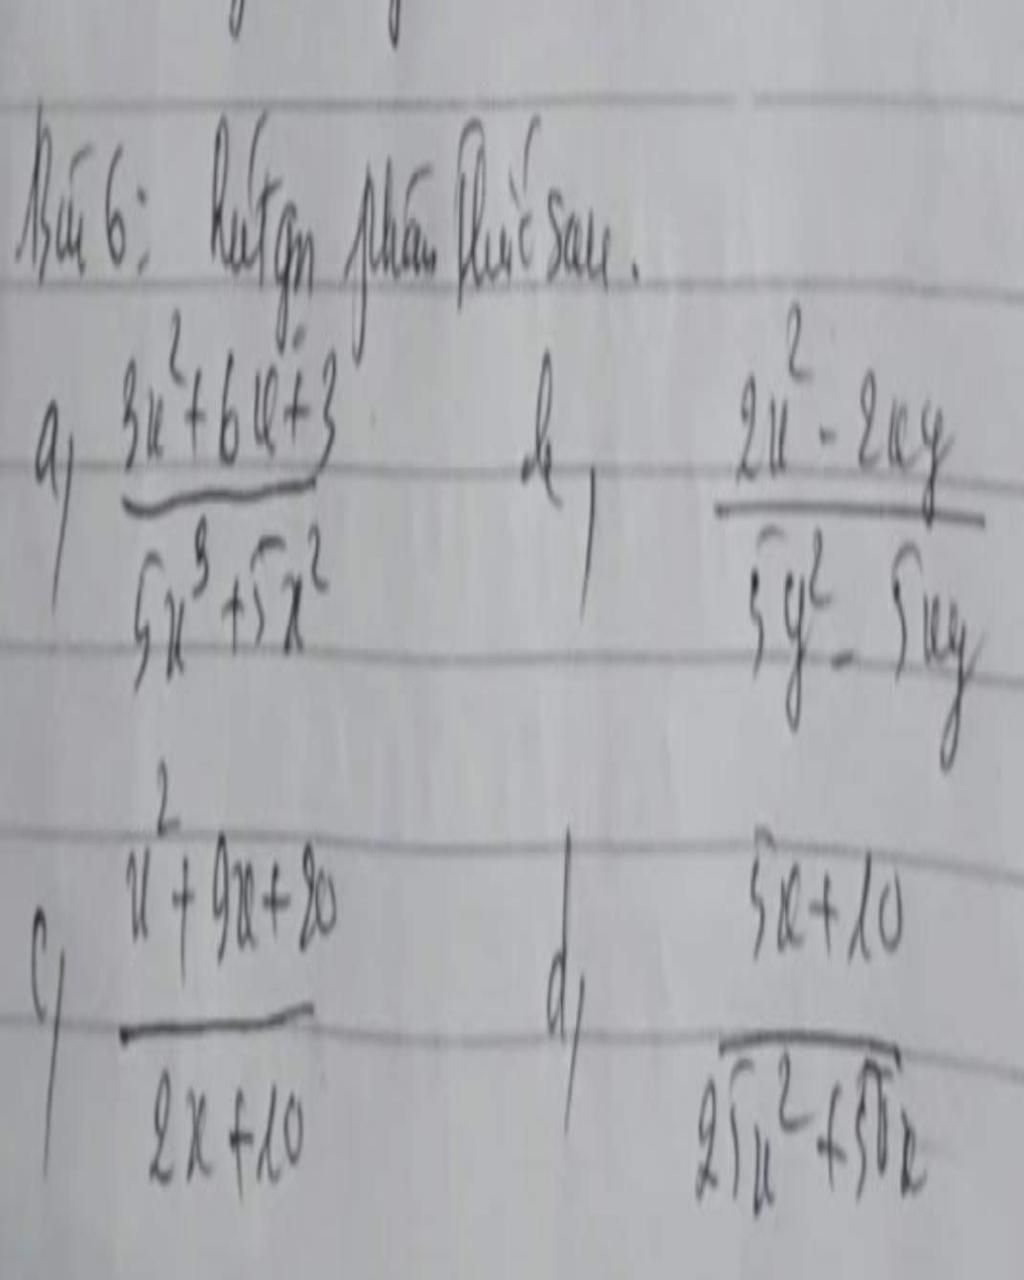 Bài 6: Rút gọn phân thức sau.
a, 3x²+6x+3 / 5x³+5x²
b, 2x² - 2xy / 5y² - 5xy
c, x² + 9x + 20 / 2x + 10
d, 5x + 10 / 25x² + 50x